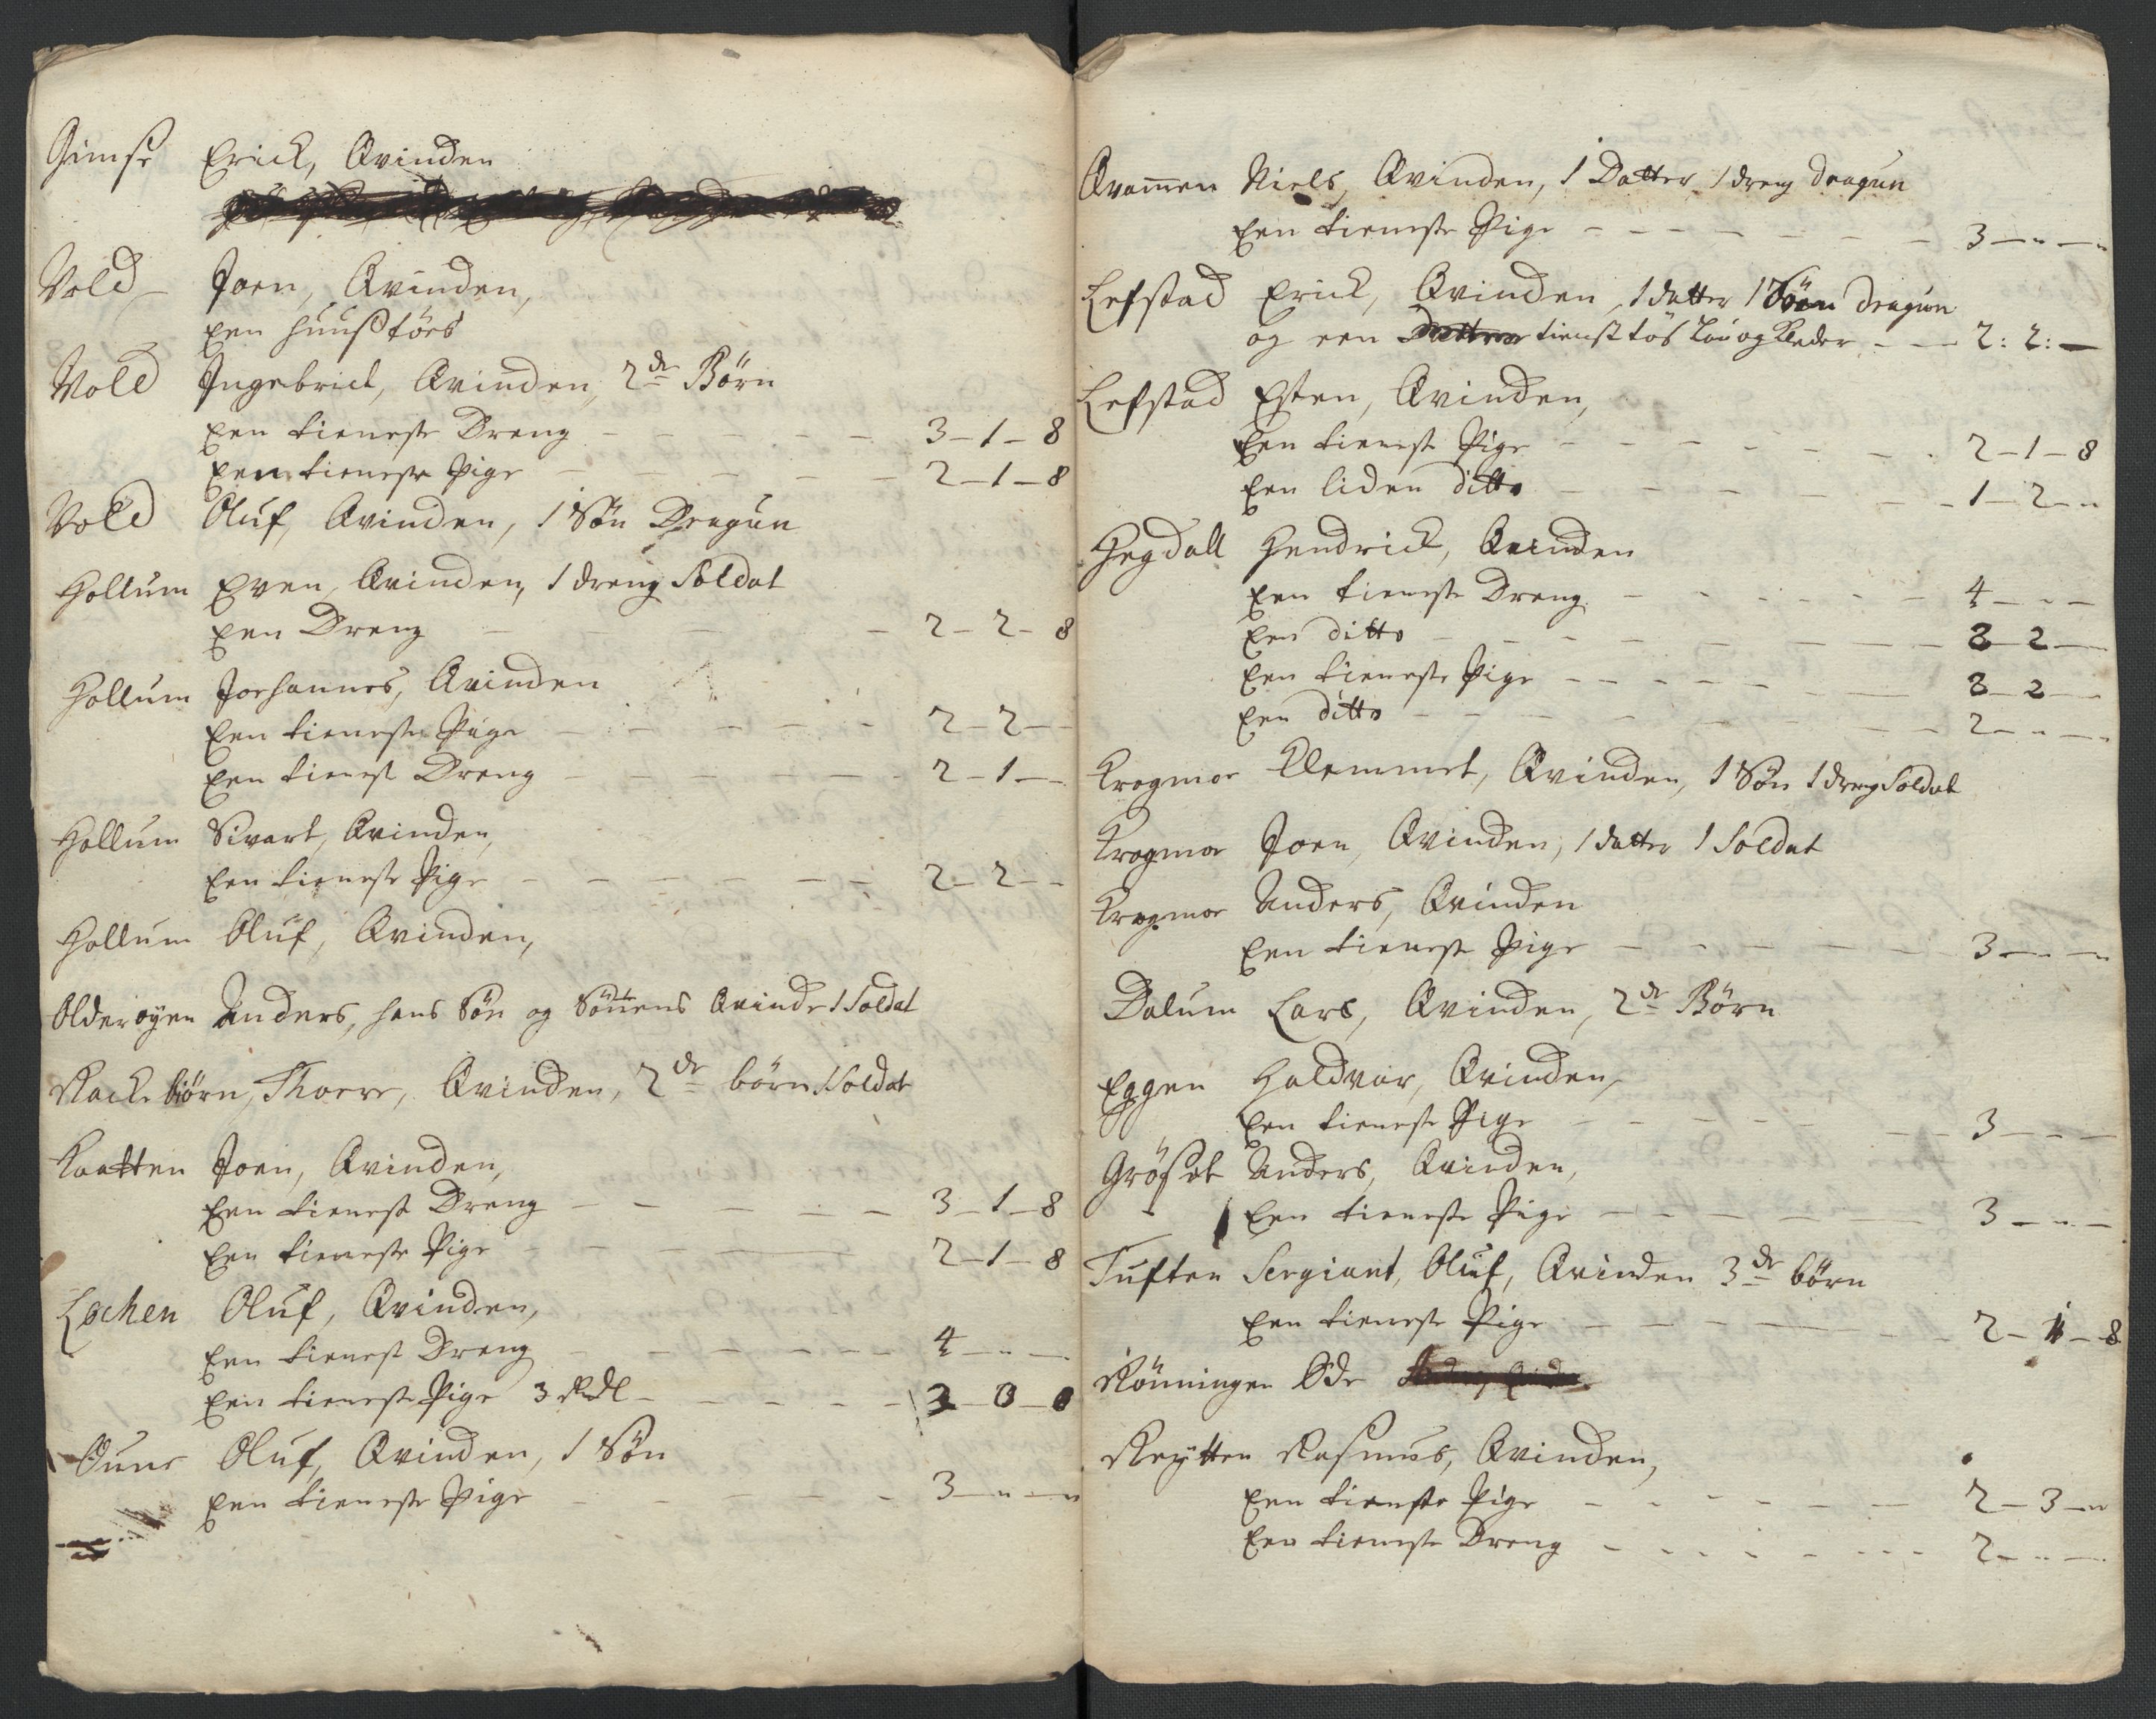 Gimse Erick, Qvinden
Vold Joen, Qvinden,
Een huustös
Vold Ingebrict, Qvinden, 2de Börn
Een tieneste Dreng - - - - - 3-1-8
Een tieneste Pige - - - - 2-1-8
Vold Oluf, Qvinden, 1 Sön Dragun
Hollum Even, Qvinden, 1 dreng Soldat
Een Dreng - - - - 2-2-8
Hollum Joehannes, Qvinden
Een tieneste Pige - - - - - 2-2--
Een tienest Dreng - - - - - 2-1--
Hollum Sivart, Qvinden,
Een tieneste Pige - - - - - 2-2--
Hollum Oluf, Qvinden,
Olderøyen Anders, hans Sön og Sönens Qvinde 1 Soldat
Rackebiörn, Thoere, Qvinden, 2de börn 1 Soldat
Kaatten Joen, Qvinden,
Een tienest Dreng - - - - - 3-1-8
Een tieneste Pige - - - - - 2-1-8
Lochen Oluf, Qvinden,
Een tienest Dreng - - - - - 4-"-
Een tieneste Pige 3 Rdl - - - - - 3-0-0
Ouns Oluf, Qvinden, 1 Sön
Een tieneste Pige - - - - 3-"-"
Qvamen Niels, Qvinden, 1 Datter 1 dreng dragun
Een tieneste Pige - - - - - 3-"-"
Lefstad Erick, Qvinden, 1 datter 1 Sön dragun
og een tienst tös og Kleder - - 2:2:-
Lefstad Esten, Qvinden,
Een tienest Pige - - - - - 2-1-8
Een liden ditto - - - - - 1-2-"
Hegdall Hendrick, Qvinden
Een tieneste Dreng - - - - - 4-"-
Een ditto - - - - - 3-2-
Een tieneste Pige - - - - - 3-2-
Een ditto - - - - - 2-"-"
Krogmoe Klemmet, Qvinden, 1 Sön 1 dreng Soldat
Krogmoe Joen, Qvinden, 1 datter 1 Soldat
Krogmoe Anders, Qvinden
Een tieneste Pige - - - - - 3-"-"
Dalum Lars, Qvinden, 2de Börn
Eggen Haldvor, Qvinden,
Een tieneste Pige - - - - - 3-"-
Grösæt Anders, Qvinden,
Een tieneste Pige - - - - - 3-"-
Tuften Sergiant, Oluf, Qvinden 3de börn
Een tieneste Pige - - - - - 2-1-8
Rönningen Öde
Røÿtten Rasmus, Qvinden,
Een tienste Pige - - - - - 2-3-"
Een tieneste Dreng - - - - - 2-"-